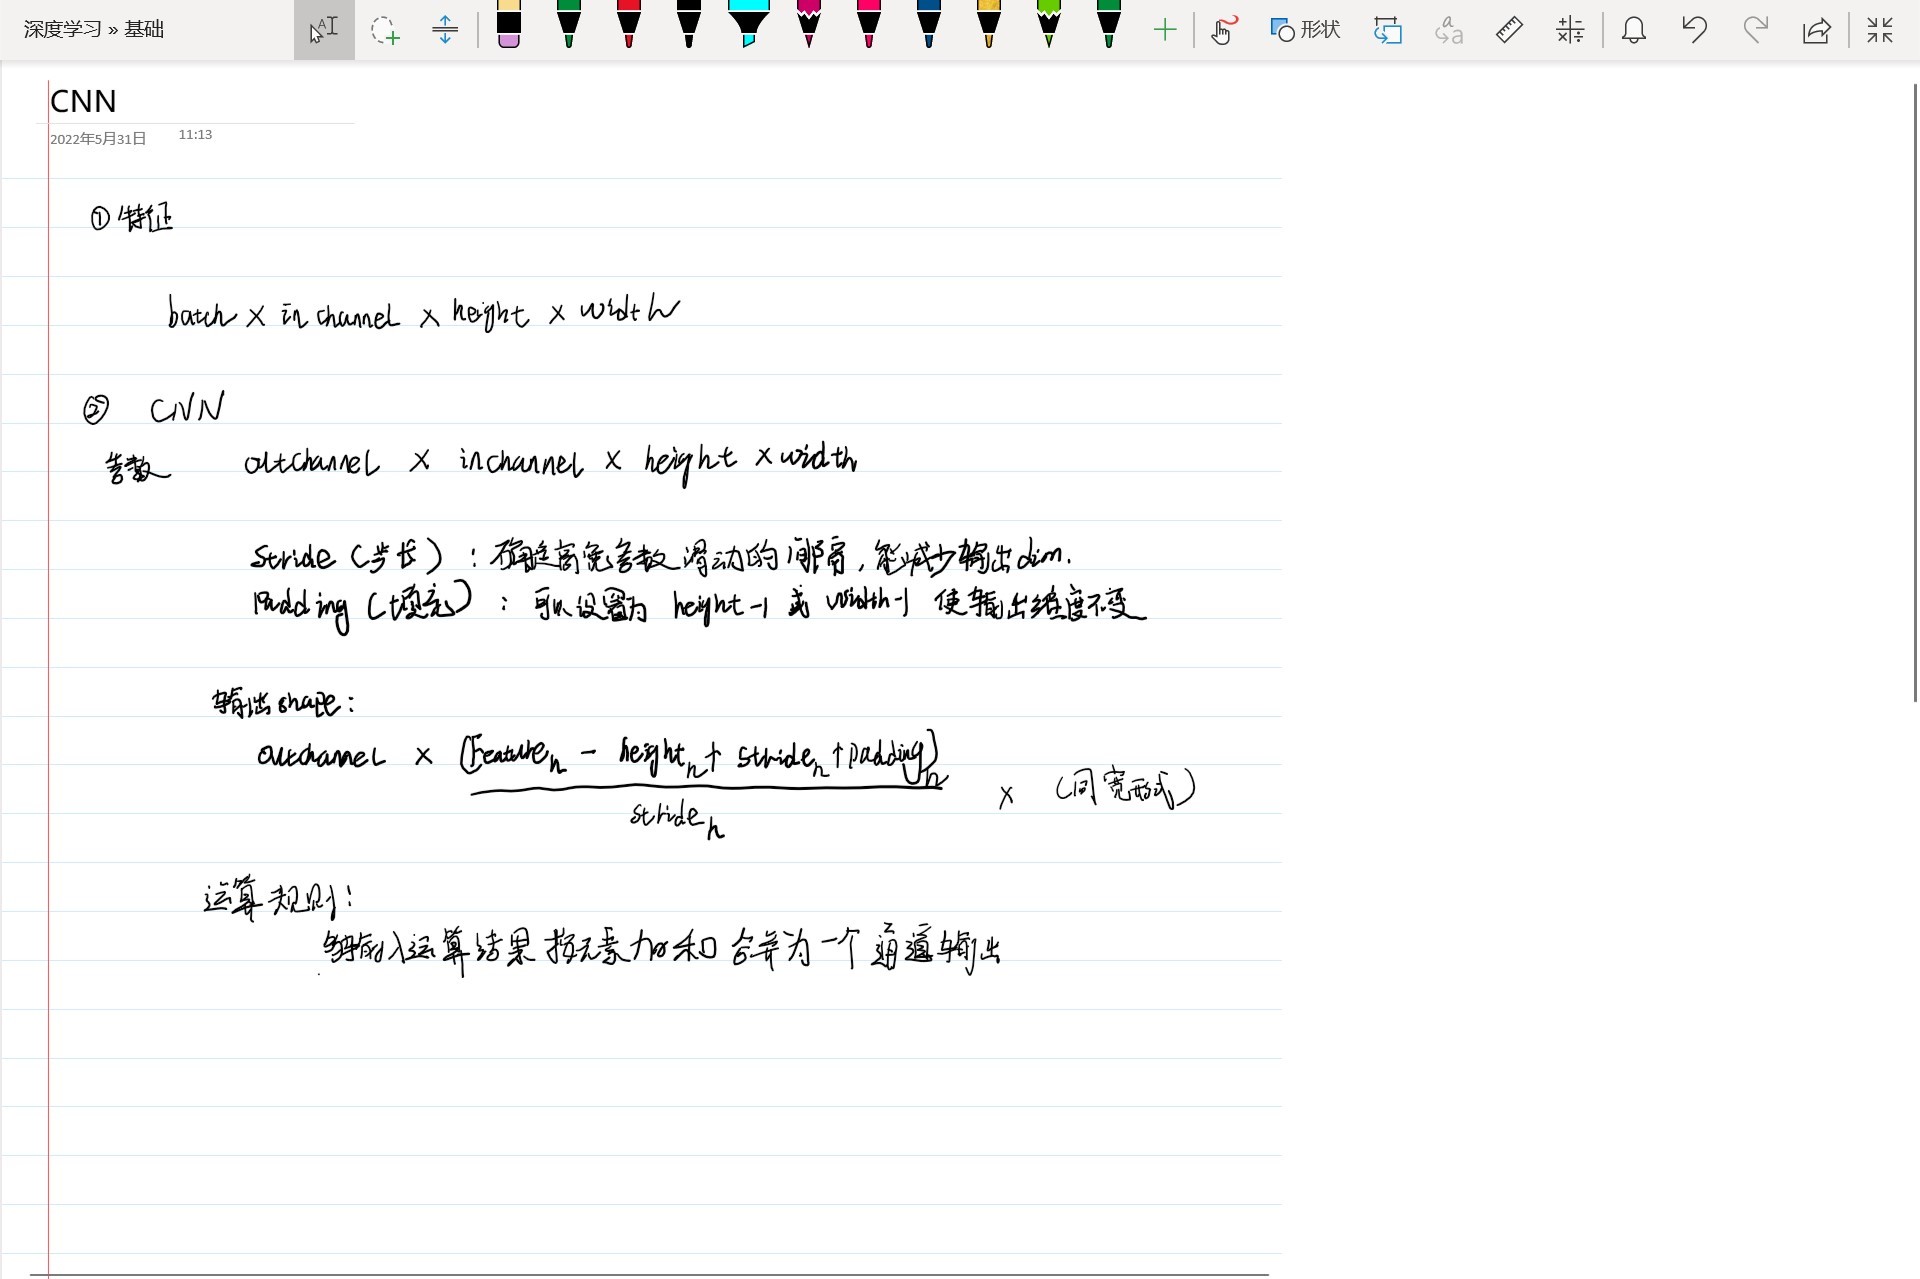 深度学习 » 基础
形状
CNN
2022年5月31日 11:13
① 特征
batch × in channel × height × width
② CNN
参数 outchannel × inchannel × height × width
Stride (步长) : 确定高宽参数滑动的间隔, 能减少输出dim.
Padding (填充) : 可以设置为 height-1 或 width-1 使输出维度不变
输出shape:
outchannel × (Feature_h - height_h + stride_h + padding_h) / stride_h × (同宽形式)
运算规则:
输入运算结果 按元素加和 合并为一个通道输出